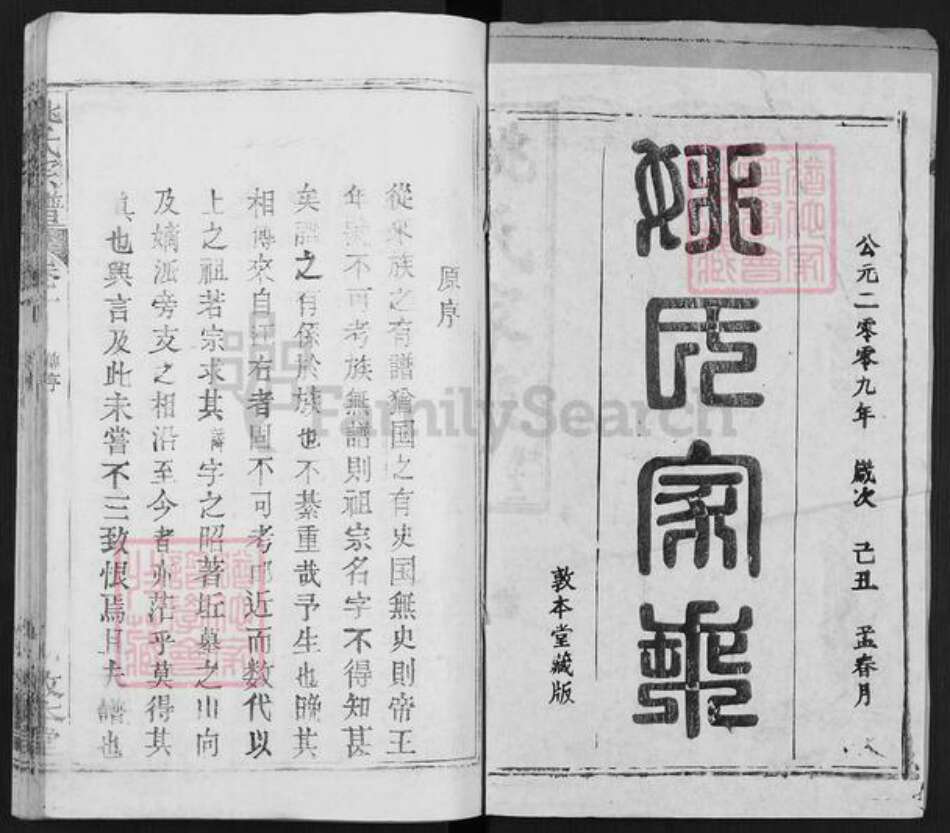 公元二零零九年 歲次 己丑 孟春月
姚氏家乘
敦本堂藏版
原序
從來族之有譜猶国之有史国無史則帝王
年號不可考族無譜則祖宗名字不得知甚
矣譜之有係於族也不綦重哉予生也晚其
相傳來自江右者固不可考即近而数代以
上之祖若宗求其諱字之昭著坵墓之山向
及嫡派旁支之相沿至今者亦茫乎莫得其
真也興言及此未嘗不三致恨焉且夫譜也
姚氏家譜 卷一
FamilySearch